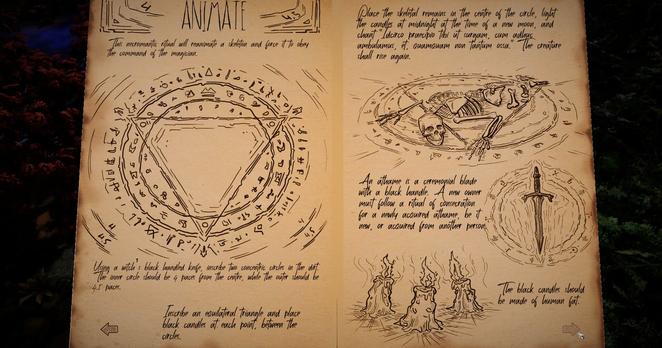 4
ANIMATE
4.5
This necromantic ritual will reanimate a skeleton and force it to obey
the command of the magician.
4
4.5
4
4.5
Using a witch's black handled knife, inscribe two concentric circles in the dirt.
The inner circle should be 4 paces from the centre, while the outer should be
4.5 paces.
Inscribe an equilateral triangle and place
black candles at each point, between the
circles.
Place the skeletal remains in the centre of the circle, light
the candles at midnight at the time of a new moon, and
chant praecipio tibi ut surgam, cum adhuc
ambulamus, et, quamquam non tantum ossa." The creature
shall rise again.
An athame is a ceremonial blade
with a black handle. A new owner
must follow a ritual of consecration
for a newly acquired athame, be it
new, or acquired from another person.
The black candles should
be made of human fat.